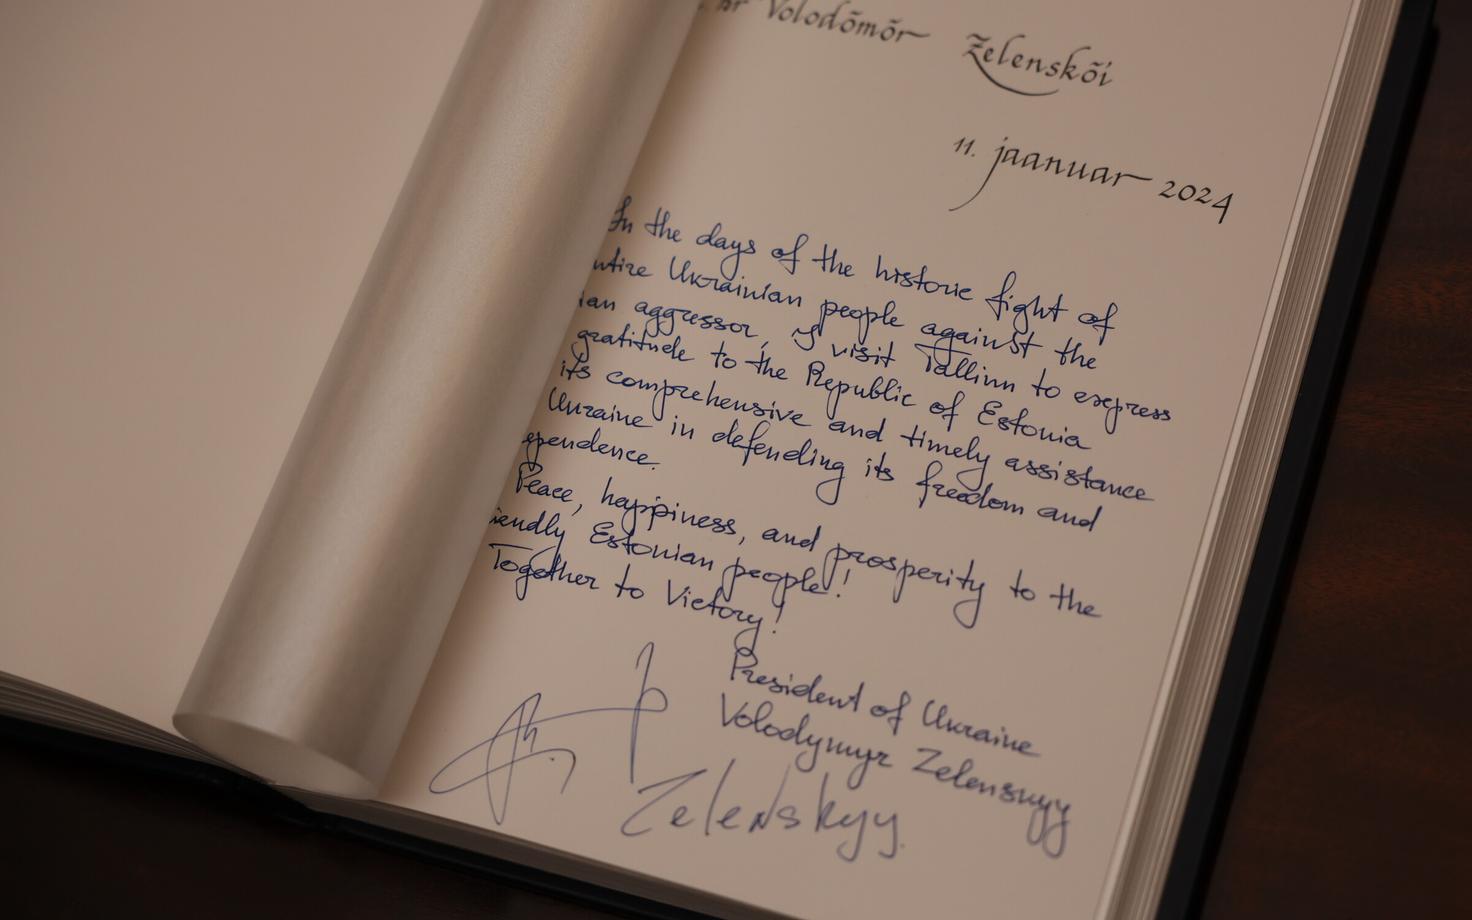 hr Volodõmõr Zelenskõi
11. jaanuar 2024
In the days of the historic fight of
ntire Ukrainian people against the
ian aggressor, I visit Tallinn to express
gratitude to the Republic of Estonia
its comprehensive and timely assistance
Ukraine in defending its freedom and
ependence.
Peace, happiness, and prosperity to the
iendly Estonian people!
Together to Victory!
President of Ukraine
Volodymyr Zelenskyy
Zelenskyy